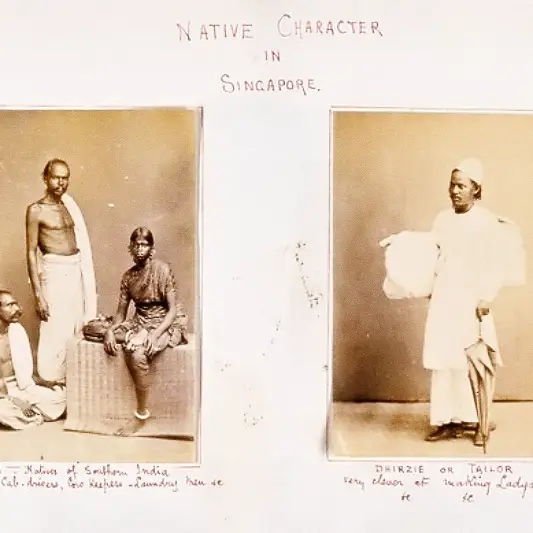 NATIVE CHARACTER
IN
SINGAPORE.
Natives of Southern India
Cab-drivers, Cow Keepers - Laundry Men &c
DHIRZIE OR TAILOR
very clever at making Ladys
&c &c